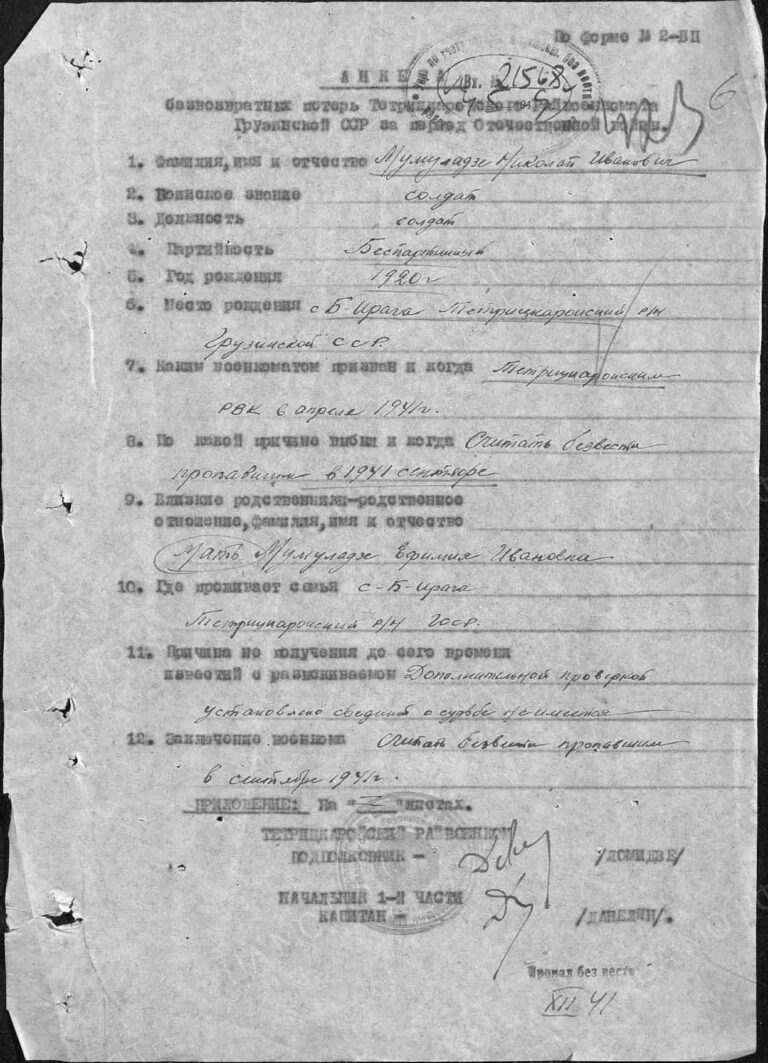 По форме № 2-БП
АНКЕТА
Вх. № 21568
6
безвозвратных потерь Тетрицкаройского райвоенкомата
Грузинской ССР за период Отечественной войны.
1. Фамилия, имя и отчество Мумуладзе Николай Иванович
2. Воинское звание солдат
3. Должность солдат
4. Партийность Беспартийный
5. Год рождения 1920г
6. Место рождения с Б-Ирага Тетрицкаройский р/н
Грузинской ССР.
7. Каким военкоматом призван и когда Тетрицкаройским
РВК в апреле 1941г.
8. По какой причине выбыл и когда Считать безвести
пропавшим в 1941 сентябре
9. Близкие родственники-родственное
отношение, фамилия, имя и отчество
Мать Мумуладзе Ефимия Ивановна
10. Где проживает семья с-Б-Ирага
Тетрицкаройский р/н ГССР.
11. Причина не получения до сего времени
известий с разыскиваемом Дополнительной проверкой
установлено сведений о судьбе не имеется
12. Заключение военкома Считать безвести пропавшим
в сентябре 1941г.
ПРИЛОЖЕНИЕ: На " "листах.
ТЕТРИЦКАРОЙСКИЙ РАЙВОЕНКОМ
ПОДПОЛКОВНИК - /ЛОМИДЗЕ/
НАЧАЛЬНИК 1-Й ЧАСТИ
КАПИТАН - /ДАНЕЛЯН/.
Пропал без вести
XII 41